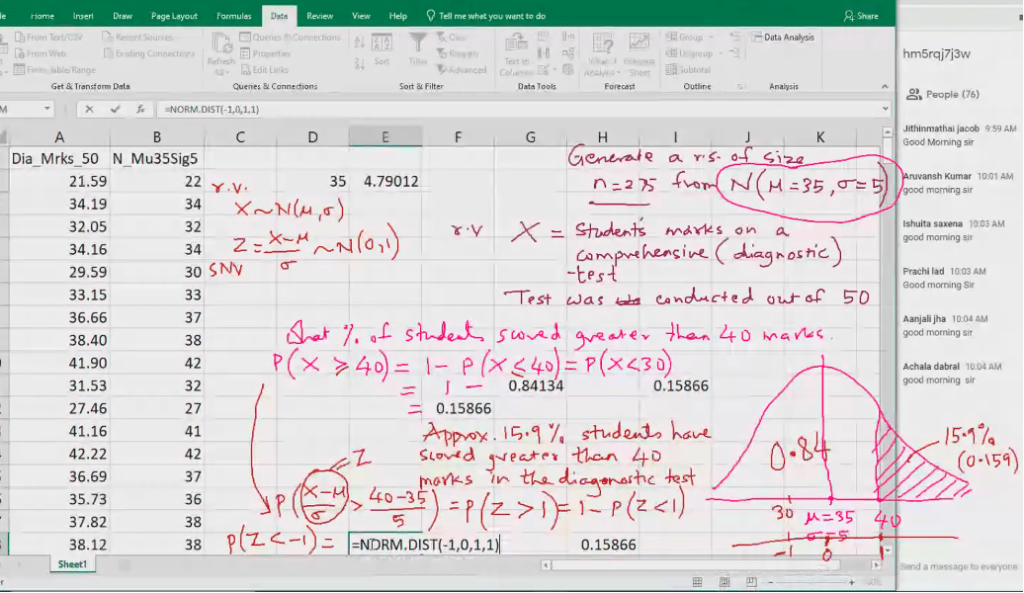 Home Insert Draw Page Layout Formulas Data Review View Help Tell me what you want to do Share
From Text/CSV
From Web
From Table/Range
Recent Sources
Existing Connections
Refresh
All
Queries & Connections
Properties
Edit Links
Sort
Filter
Clear
Reapply
Advanced
Text to
Columns
What-If
Analysis
Forecast
Sheet
Group
Ungroup
Subtotal
Data Analysis
Get & Transform Data Queries & Connections Sort & Filter Data Tools Forecast Outline Analysis
=NORM.DIST(-1,0,1,1)
A B C D E F G H I J K
Dia_Mrks_50 N_Mu35Sig5
21.59 22 35 4.79012
34.19 34
32.05 32
34.16 34
29.59 30
33.15 33
36.66 37
38.40 38
41.90 42
31.53 32 0.84134 0.15866
27.46 27 0.15866
41.16 41
42.22 42
36.69 37
35.73 36
37.82 38
38.12 38 =NORM.DIST(-1,0,1,1) 0.15866
Sheet1
Generate a r.s. of size
n=275 from N(μ=35, σ=5)
r.v.
X~N(μ,σ)
Z = X-μ/σ ~N(0,1)
SNV
r.v X = Students marks on a
comprehensive (diagnostic)
test
Test was conducted out of 50
What % of students scored greater than 40 marks.
P(X ≥ 40) = 1 - P(X ≤ 40) = P(X<30)
= 1 -
=
Approx. 15.9% students have
scored greater than 40
marks in the diagnostic test
Z
P(X-μ/σ > 40-35/5) = P(Z > 1) = 1 - P(Z < 1)
P(Z < -1) =
0.84
15.9%
(0.159)
30 μ=35 40
σ=5
-1 0 1
hm5rqj7j3w
People (76)
Jithinmathai jacob 9:59 AM
Good Morning sir
Aruvansh Kumar 10:01 AM
good morning sir
Ishuita saxena 10:03 AM
good morning sir
Prachi lad 10:03 AM
Good morning sir
Aanjali jha 10:04 AM
good morning sir
Achala dabral 10:04 AM
good morning sir
Send a message to everyone